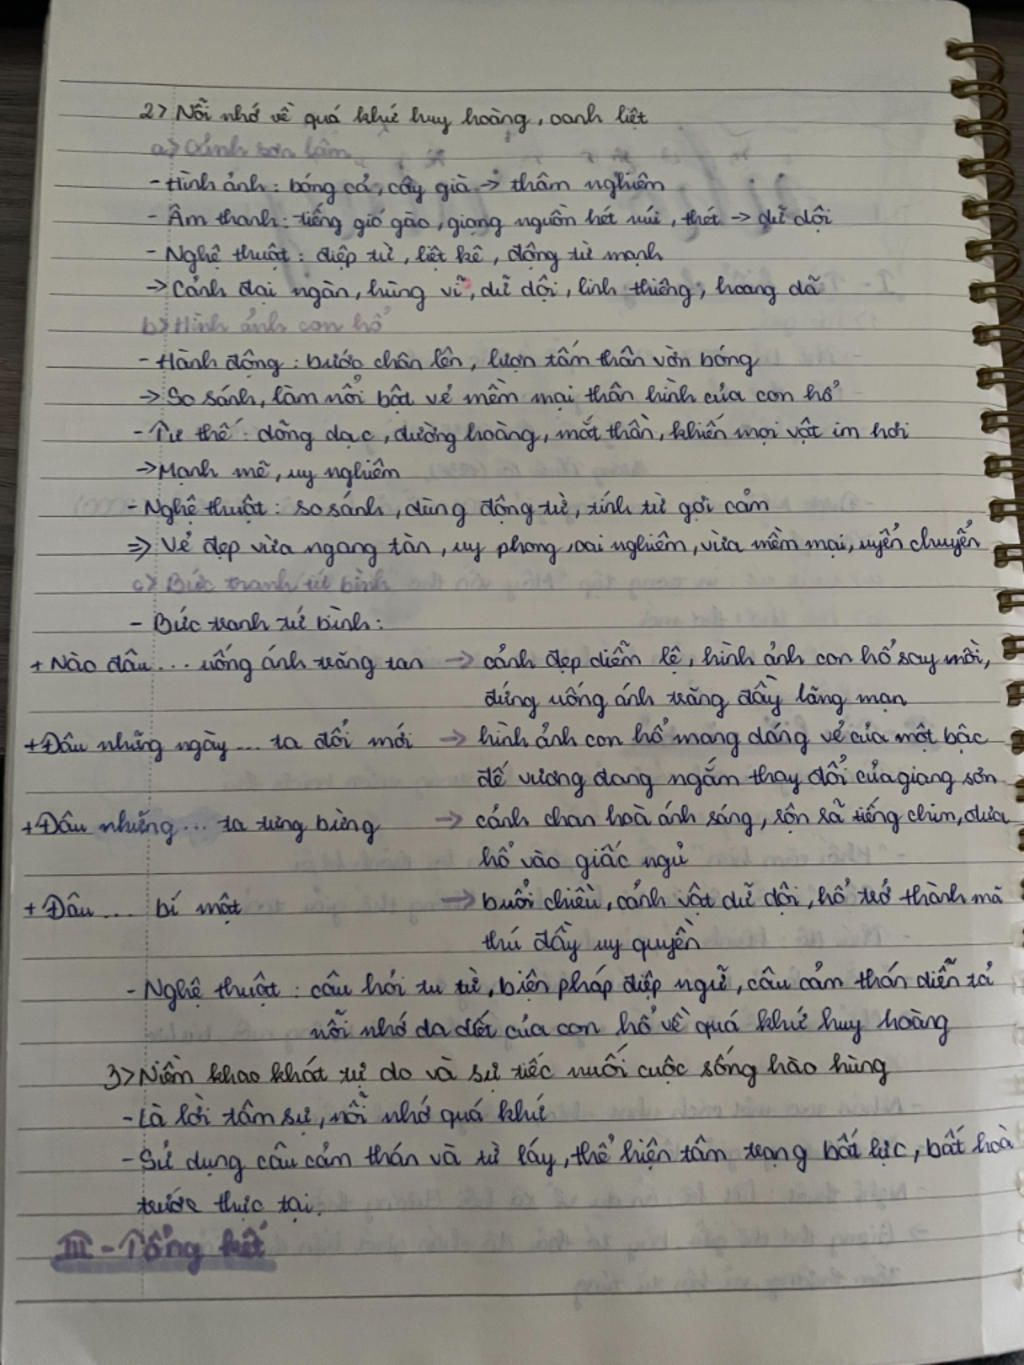 2> Nỗi nhớ về quá khứ huy hoàng, oanh liệt
a> Cảnh sơn lâm
- Hình ảnh: bóng cả, cây già → thâm nghiêm
- Âm thanh: tiếng gió gào, giọng nguồn hét núi, thét → dữ dội
- Nghệ thuật: điệp từ, liệt kê, động từ mạnh
→ Cảnh đại ngàn, hùng vĩ, dữ dội, linh thiêng, hoang dã
b> Hình ảnh con hổ
- Hành động: bước chân lên, lượn tấm thân vờn bóng
→ So sánh, làm nổi bật vẻ mềm mại thân hình của con hổ
- Tư thế: dõng dạc, đường hoàng, mắt thần, khiến mọi vật im hơi
→ Mạnh mẽ, uy nghiêm
- Nghệ thuật: so sánh, dùng động từ, tính từ gợi cảm
=> Vẻ đẹp vừa ngang tàn, uy phong, oai nghiêm, vừa mềm mại, uyển chuyển
c> Bức tranh tứ bình
- Bức tranh tứ bình:
+ Nào đâu... uống ánh trăng tan → cảnh đẹp diễm lệ, hình ảnh con hổ say mồi,
đứng uống ánh trăng đầy lãng mạn
+ Đâu những ngày... ta đổi mới → hình ảnh con hổ mang dáng vẻ của một bậc
đế vương đang ngắm thay đổi của giang sơn
+ Đâu những... ta tưng bừng → cảnh chan hoà ánh sáng, rộn rã tiếng chim, đưa
hổ vào giấc ngủ
+ Đâu... bí mật → buổi chiều, cảnh vật dữ dội, hổ trở thành mã
thú đầy uy quyền
- Nghệ thuật: câu hỏi tu từ, biện pháp điệp ngữ, câu cảm thán diễn tả
nỗi nhớ da diết của con hổ về quá khứ huy hoàng
3> Niềm khao khát tự do và sự tiếc nuối cuộc sống hào hùng
- Là lời tâm sự, nỗi nhớ quá khứ
- Sử dụng câu cảm thán và từ láy, thể hiện tâm trạng bất lực, bất hoà
trước thực tại.
III - Tổng kết